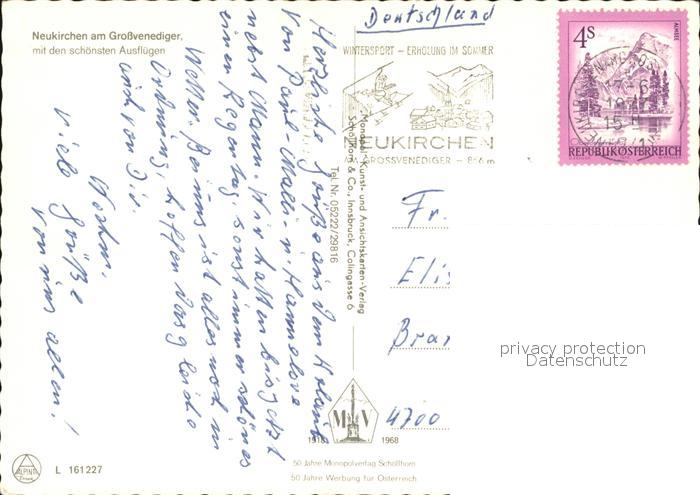 Neukirchen am Großvenediger,
mit den schönsten Ausflügen
Deutschland
WINTERSPORT - ERHOLUNG IM SOMMER
NEUKIRCHEN
AM GROSSVENEDIGER - 856 m
4S
ALMSEE
REPUBLIK ÖSTERREICH
Herzliche Grüße aus dem Urlaub
von Paul-
nebst Mann. Wir hatten bis jetzt
einen Regentag, sonst immer schönes
Wetter. Bei uns ist alles noch in
Ordnung, hoffen das gleiche
auch von Dir.
Viele Grüße
von uns allen!
Monopol-Kunst- und Ansichtskarten-Verlag
Schöllhorn & Co., Innsbruck, Colingasse 6
Tel. Nr. 05222/29816
Fr.
Elis
Bran
4700
privacy protection
Datenschutz
M V
1918 1968
50 Jahre Monopolverlag Schöllhorn
50 Jahre Werbung für Österreich
ALPINA
L 161227